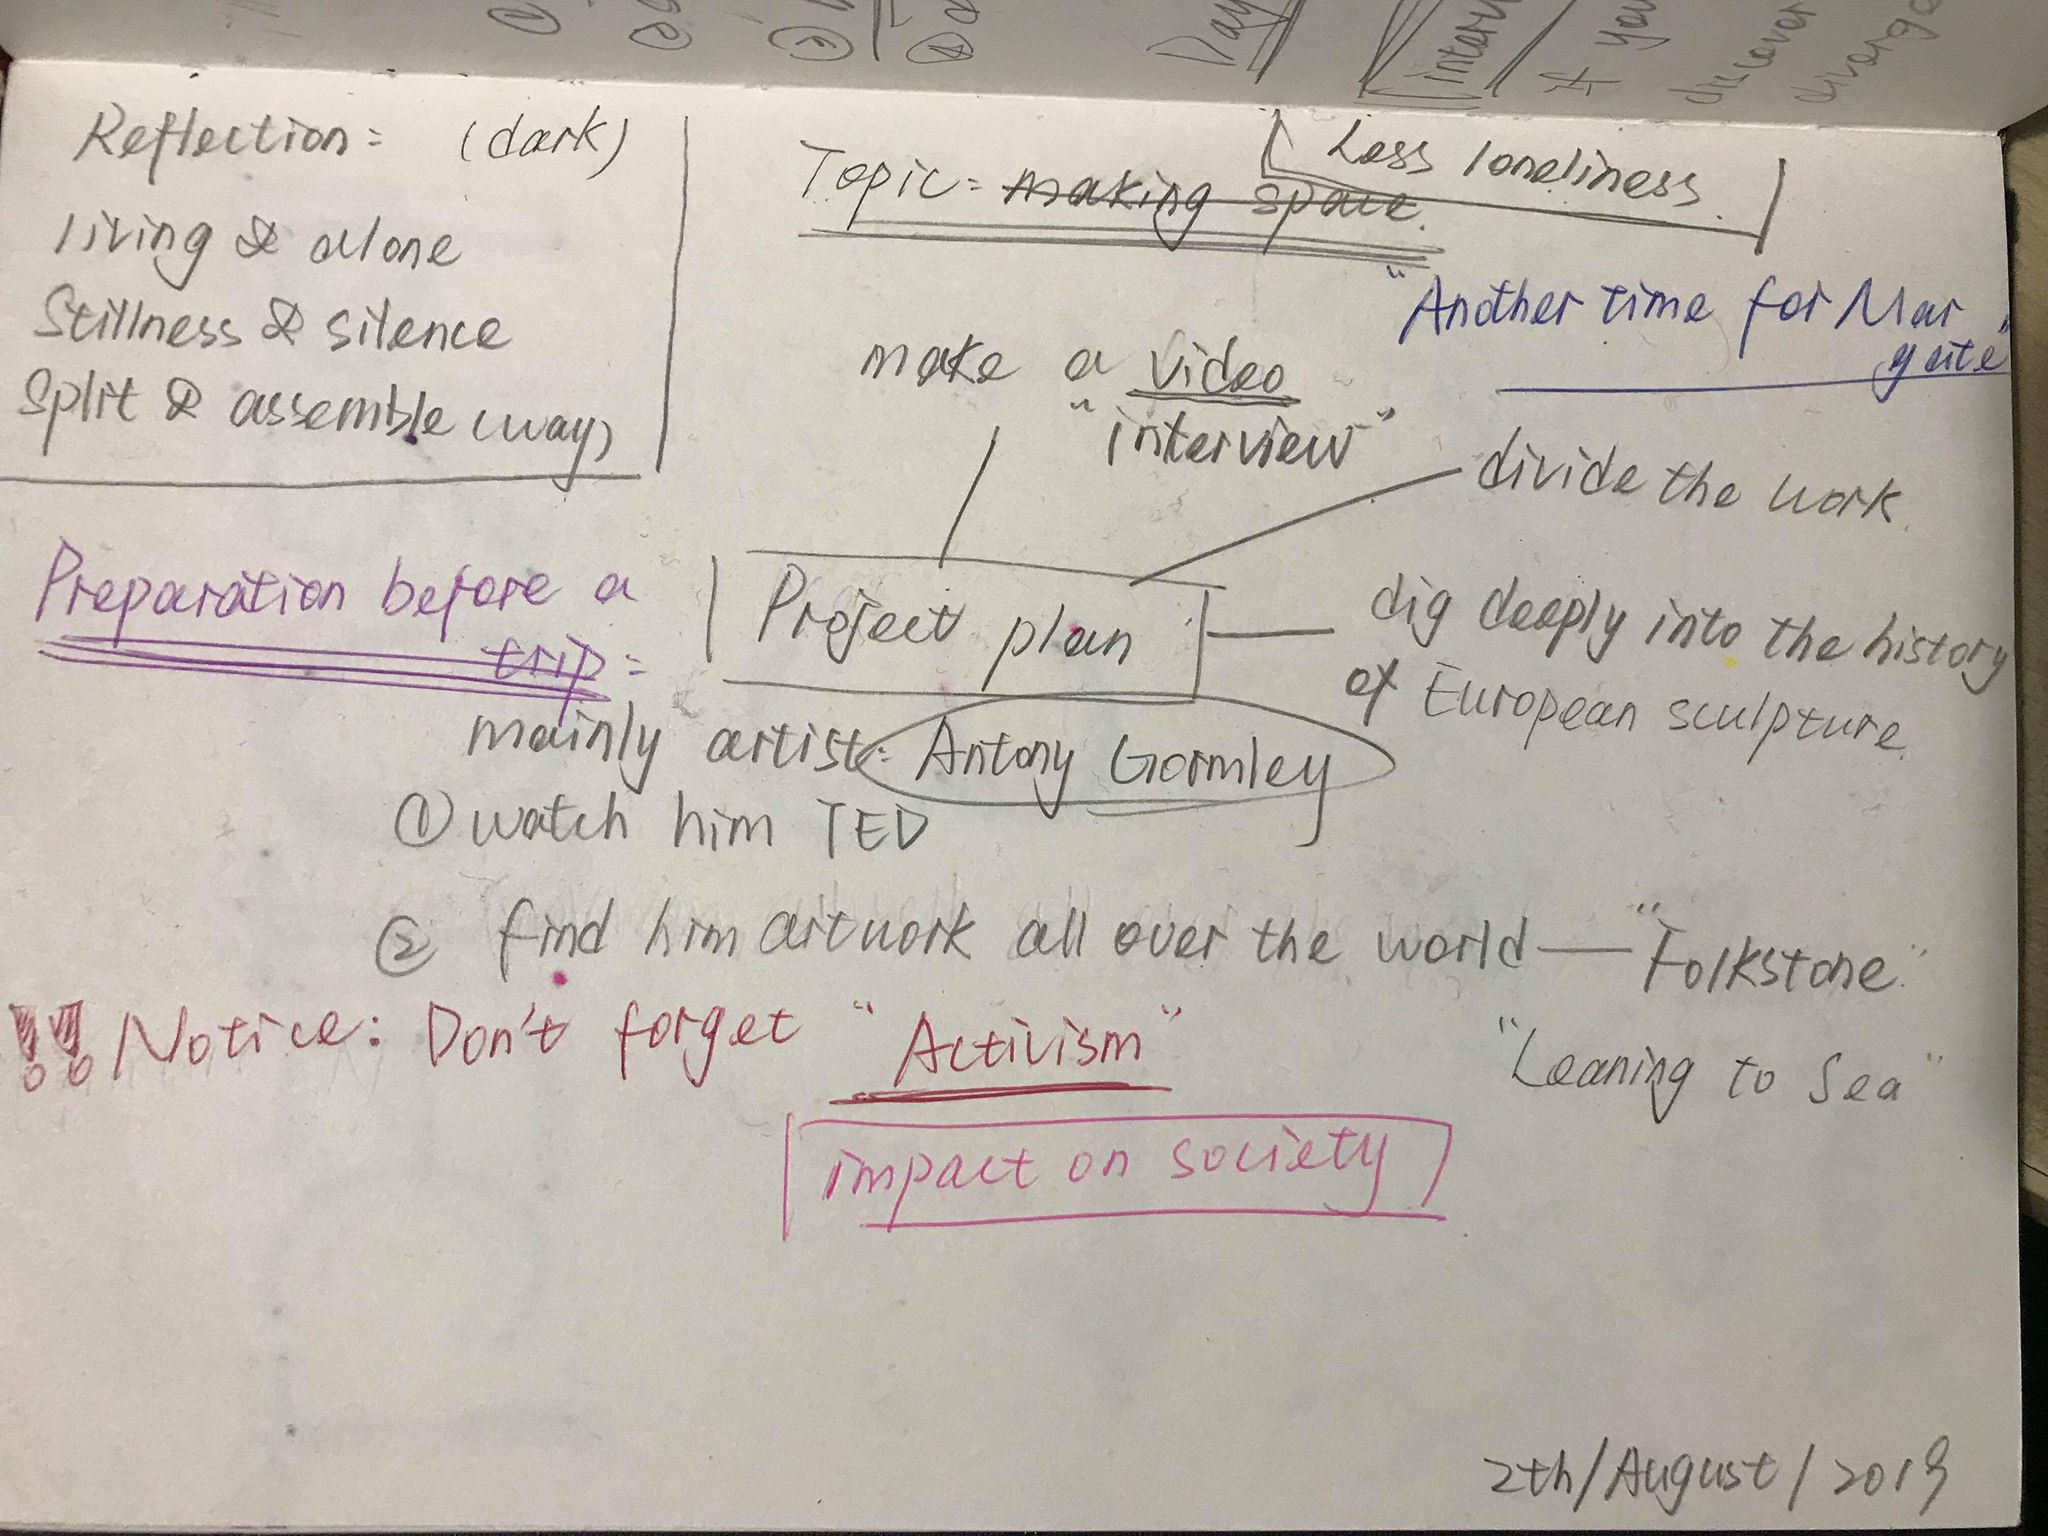 Day
interv
If you
discover
diverge
Reflection: (dark)
living & alone
Stillness & silence
Split & assemble (way)
Topic: making space.
Less loneliness.
"Another time for Mar
gate"
make a video
"interview"
divide the work.
Project plan
dig deeply into the history
of European sculpture.
Preparation before a
trip:
mainly artist: Antony Gormley
① watch him TED
② find him artwork all over the world — "Folkstone"
"Leaning to Sea"
!! Notice: Don't forget "Activism"
impact on society
2th/August/2019